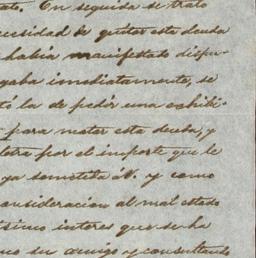 ato. En seguida se trató
cesidad de quitar esta deuda
había manifestado dispu-
gaba inmediatamente, se
tó la de pedir una exhibi-
para matar esta deuda, y
letra por el importe que le
ya sometida á V. y como
consideracion al mal estado
isimo interes que se ha
mo su amigo y consultando